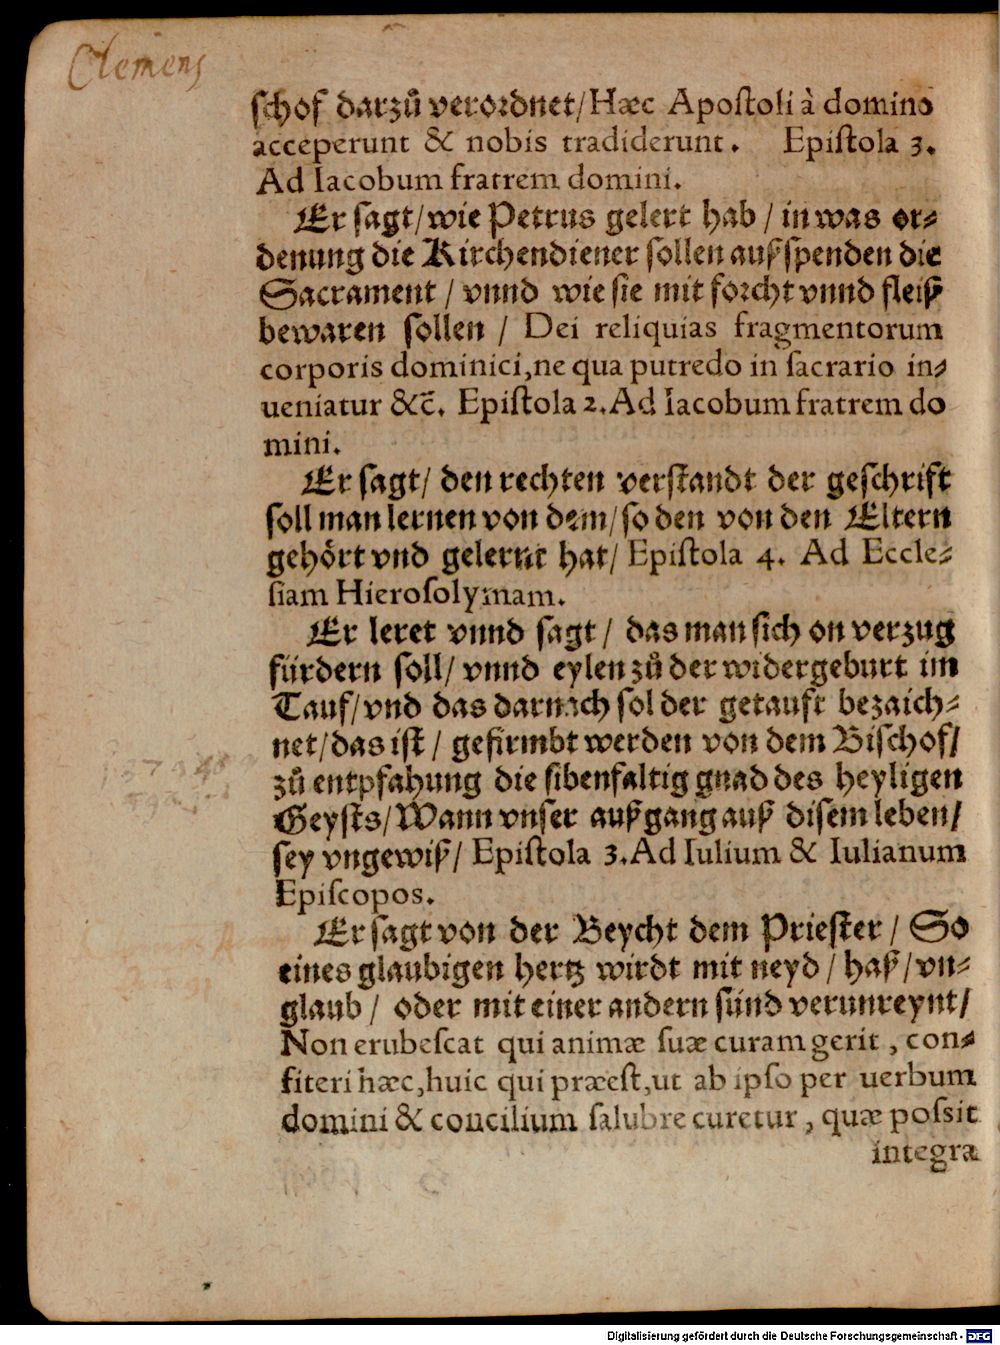 Clemens
schof darzů verordnet/Hæc Apoſtoli à domino
acceperunt & nobis tradiderunt. Epiſtola 3.
Ad Iacobum fratrem domini.
Er ſagt/wie Petrus gelert hab / in was or⸗
denung die Kirchendiener ſollen auſʒſpenden die
Sacrament / vnnd wie ſie mit forcht vnnd fleiß
bewaren ſollen / Dei reliquias fragmentorum
corporis dominici,ne qua putredo in ſacrario in⸗
ueniatur &c̄. Epiſtola 2.Ad Iacobum fratrem do
mini.
Er ſagt/ den rechten verſtandt der geſchrift
ſoll man lernen von dem/ſo den von den Eltern
gehört vnd gelernt hat/ Epiſtola 4. Ad Eccle⸗
ſiam Hieroſolymam.
Er leret vnnd ſagt / das man ſich on verzug
fürdern ſoll/ vnnd eylen zů der widergeburt im
Tauf/vnd das darnach ſol der getauft bezaich⸗
net/das iſt / gefirmbt werden von dem Biſchof/
zů entpfahung die ſibenfaltig gnad des heyligen
Geyſts/Wann vnſer außgang auß diſem leben/
ſey vngewiß/ Epiſtola 3.Ad Iulium & Iulianum
Epiſcopos.
Er ſagt von der Beycht dem Prieſter / So
eines glaubigen hertz wirdt mit neyd / haß/vn⸗
glaub / oder mit einer andern ſünd verunreynt/
Non erubeſcat qui animæ ſuæ curam gerit , con⸗
fiteri hæc,huic qui præeſt,ut ab ipſo per uerbum
domini & concilium ſalubre curetur , quæ poſsit
integra
Digitalisierung gefördert durch die Deutsche Forschungsgemeinschaft - DFG